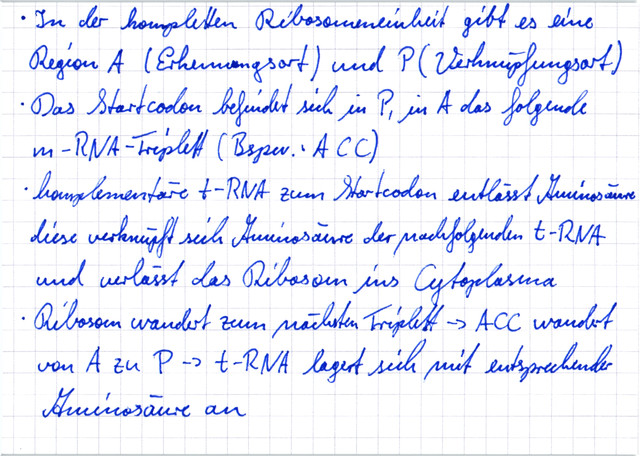 · In der kompletten Ribosomeneinheit gibt es eine
Region A (Erkennungsort) und P (Verknüpfungsort)
· Das Startcodon befindet sich in P, in A das folgende
m-RNA-Triplett (Bspw.: ACC)
· komplementäre t-RNA zum Startcodon entlässt Aminosäure
diese verknüpft sich Aminosäure der nachfolgenden t-RNA
und verlässt das Ribosom ins Cytoplasma
· Ribosom wandert zum nächsten Triplett -> ACC wandert
von A zu P -> t-RNA lagert sich mit entsprechender
Aminosäure an